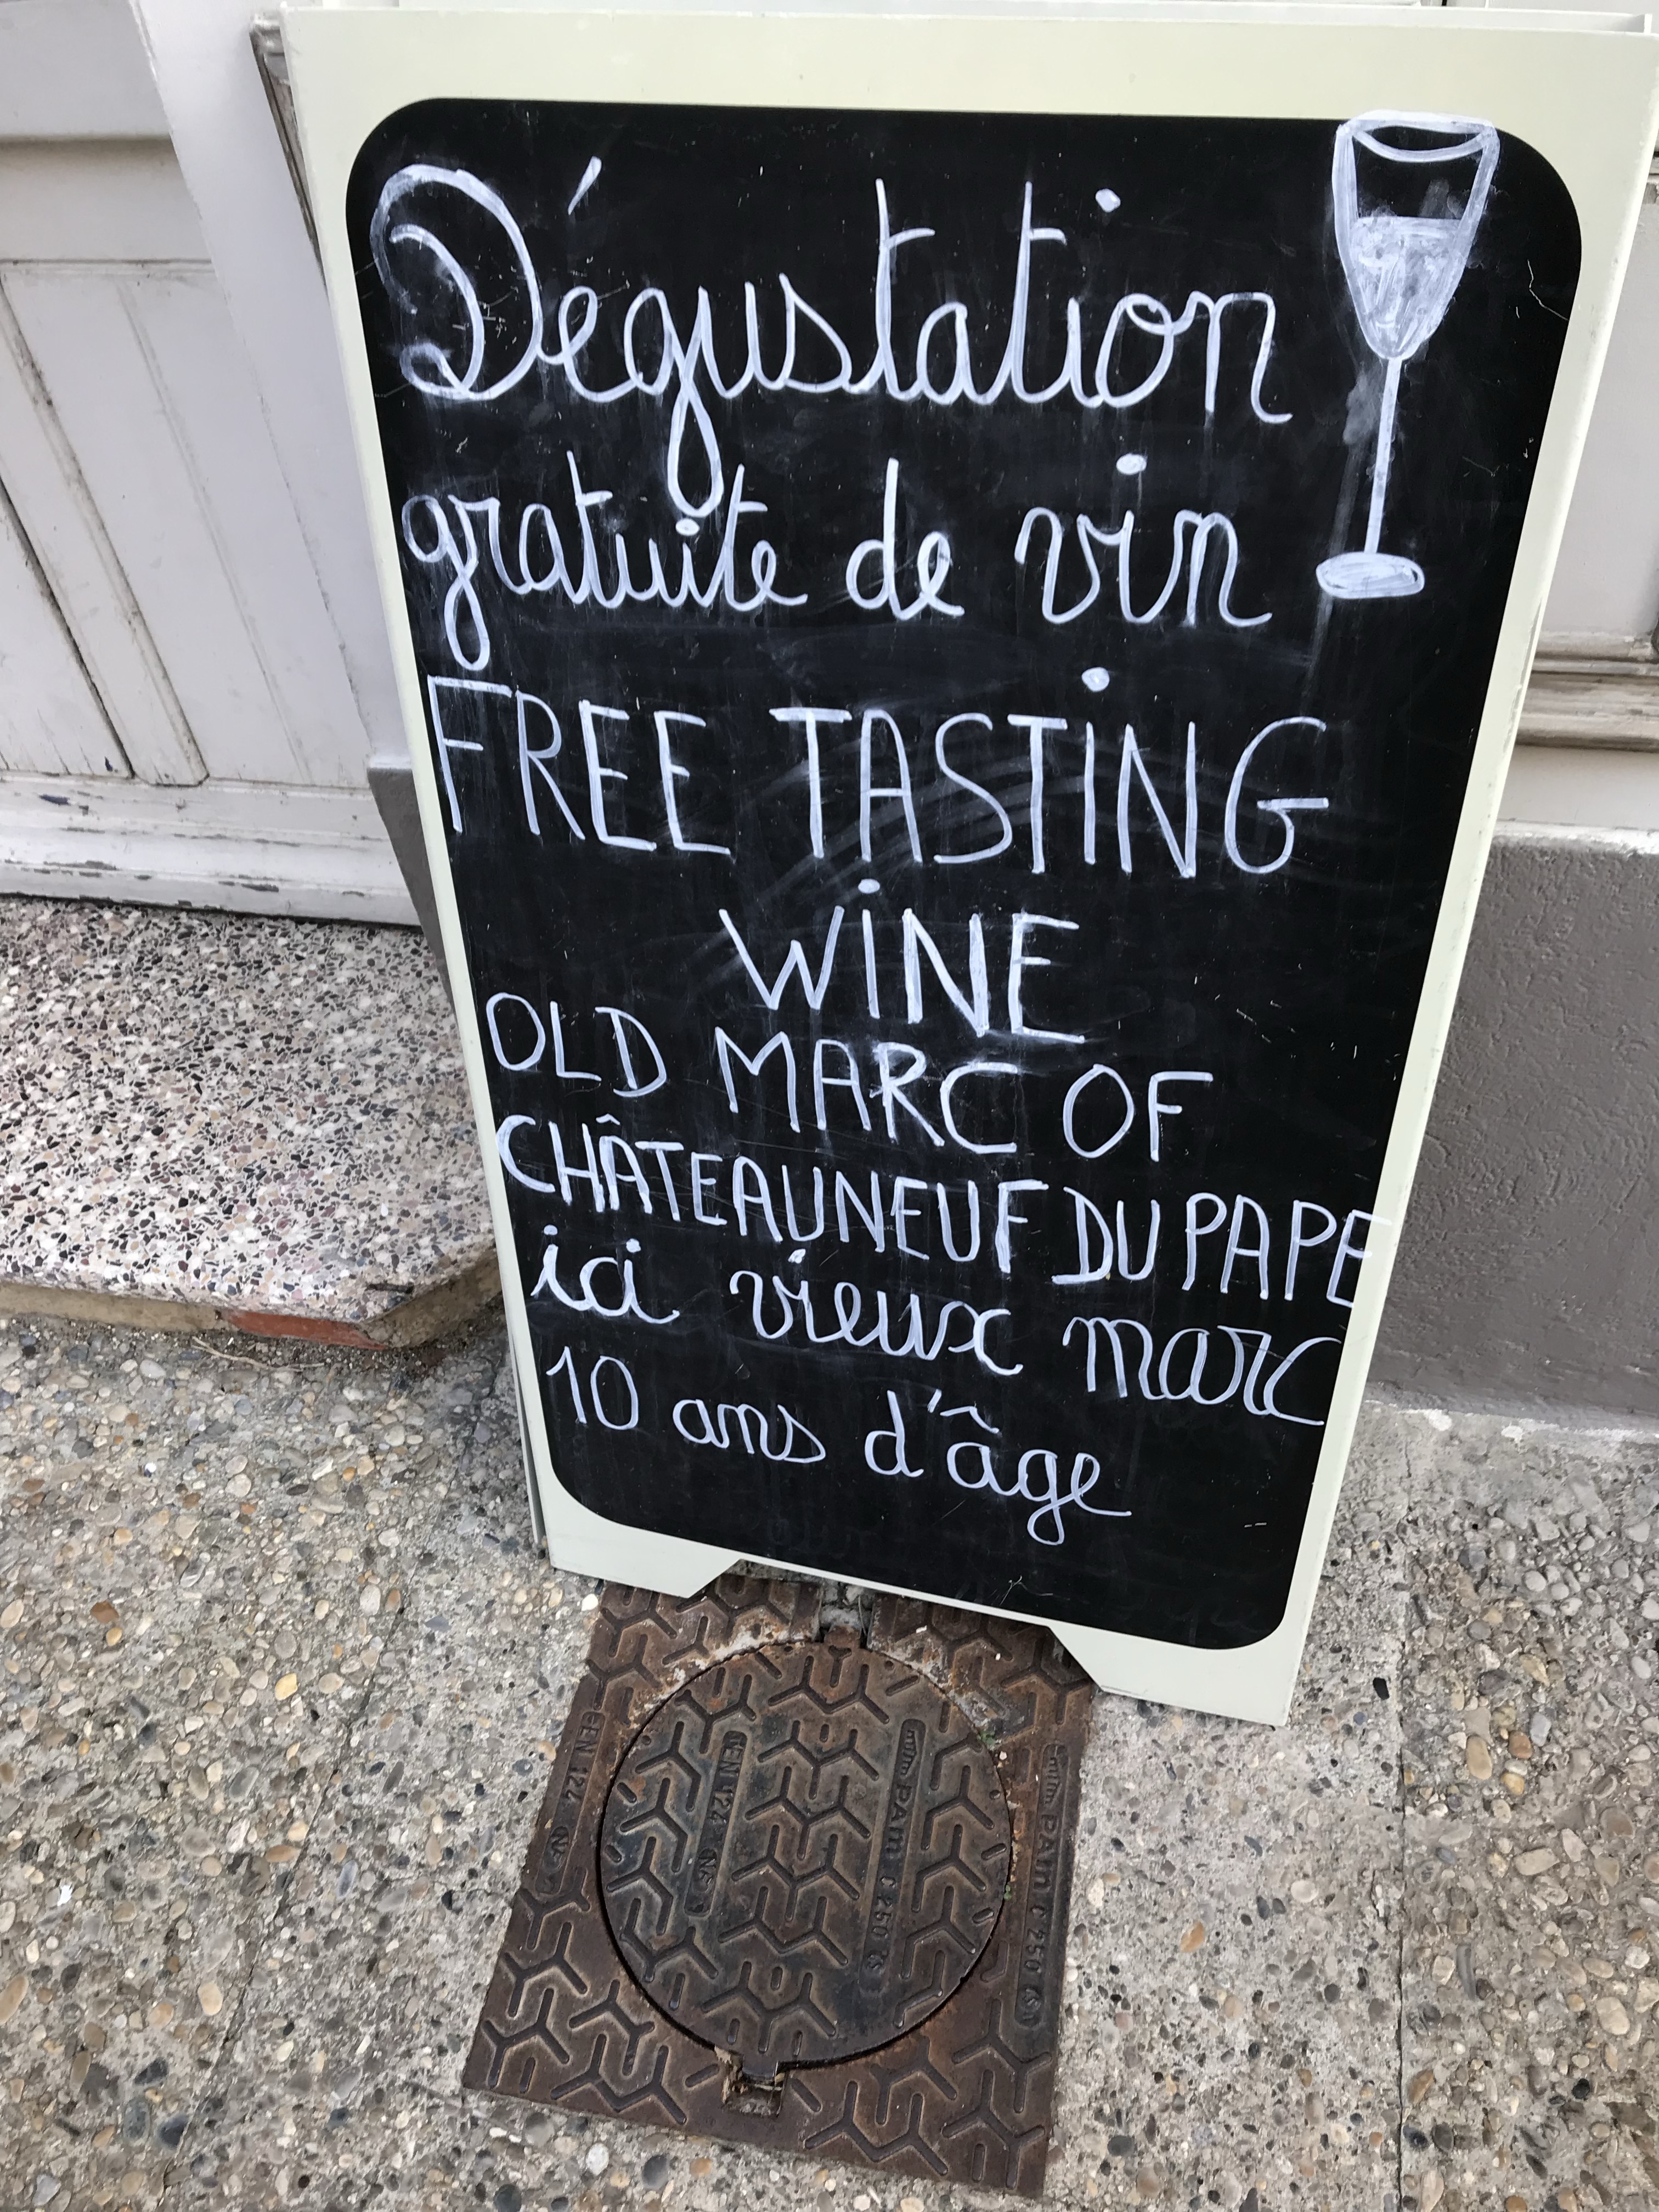 Dégustation
gratuite de vin
FREE TASTING
WINE
OLD MARC OF
CHÂTEAUNEUF DU PAPE
ici vieux marc
10 ans d'âge
EN 124 NF
PAM C 250
EN 124 NF
PAM C 250